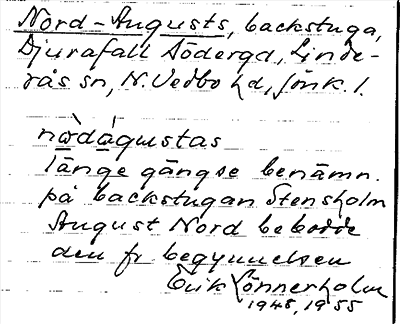 Nord-Augusts, backstuga,
Djurafall Söderg., Linde-
rås sn, N. Vedbo hd, Jönk. l.
nὼdágustas
länge gängse benämn.
på backstugan Stensholm
August Nord bebodde
den fr begynnelsen
Erik Lönnerholm
1948, 1955